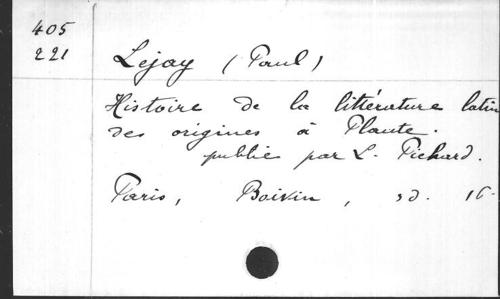 405
221
Lejay (Paul)
Histoire de la littérature latin
des origines à Plaute.
publié par L. Pichard.
Paris, Boivin, sd. 16-